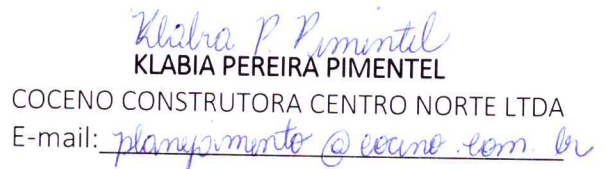 Klábia P. Pimentel
KLABIA PEREIRA PIMENTEL
COCENO CONSTRUTORA CENTRO NORTE LTDA
E-mail: planejamento @ coceno.com.br